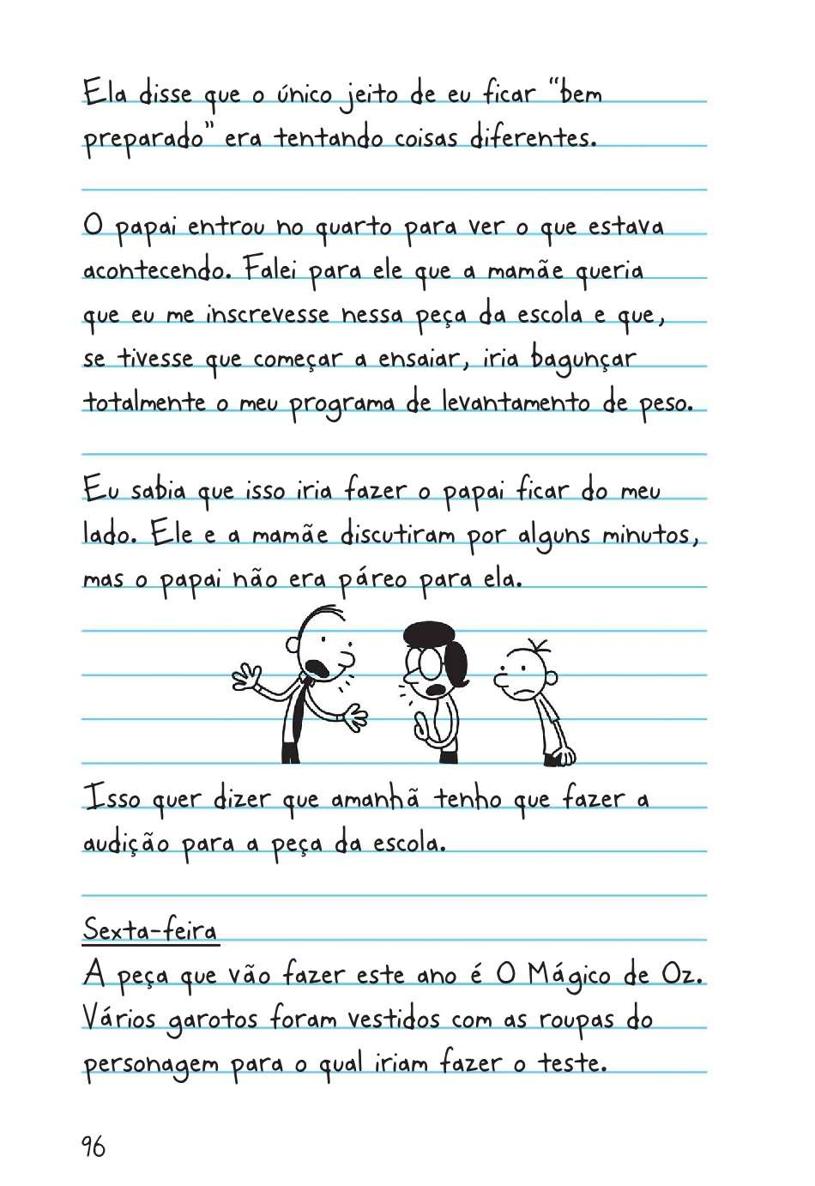 Ela disse que o único jeito de eu ficar “bem
preparado” era tentando coisas diferentes.
O papai entrou no quarto para ver o que estava
acontecendo. Falei para ele que a mamãe queria
que eu me inscrevesse nessa peça da escola e que,
se tivesse que começar a ensaiar, iria bagunçar
totalmente o meu programa de levantamento de peso.
Eu sabia que isso iria fazer o papai ficar do meu
lado. Ele e a mamãe discutiram por alguns minutos,
mas o papai não era páreo para ela.
Isso quer dizer que amanhã tenho que fazer a
audição para a peça da escola.
Sexta-feira
A peça que vão fazer este ano é O Mágico de Oz.
Vários garotos foram vestidos com as roupas do
personagem para o qual iriam fazer o teste.
96